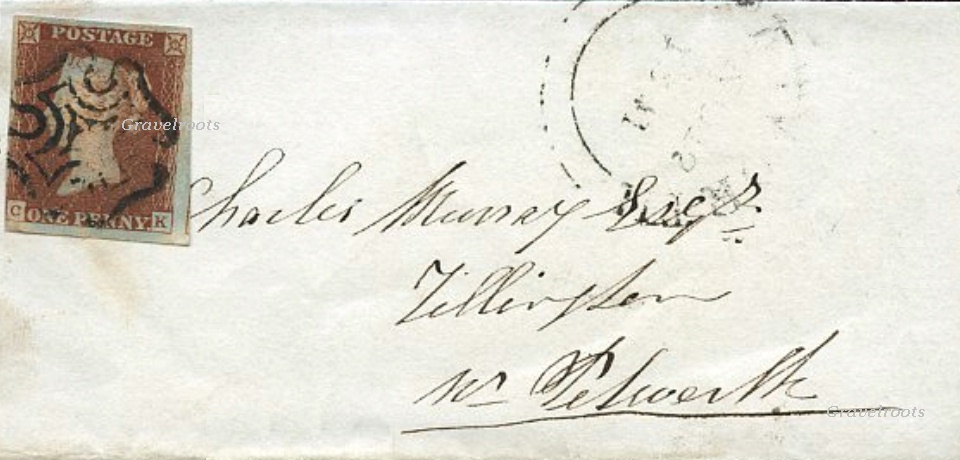 POSTAGE
C ONE PENNY K
Gravelroots
Charles Murray Esqr.
Tillington
nr Petworth
Gravelroots